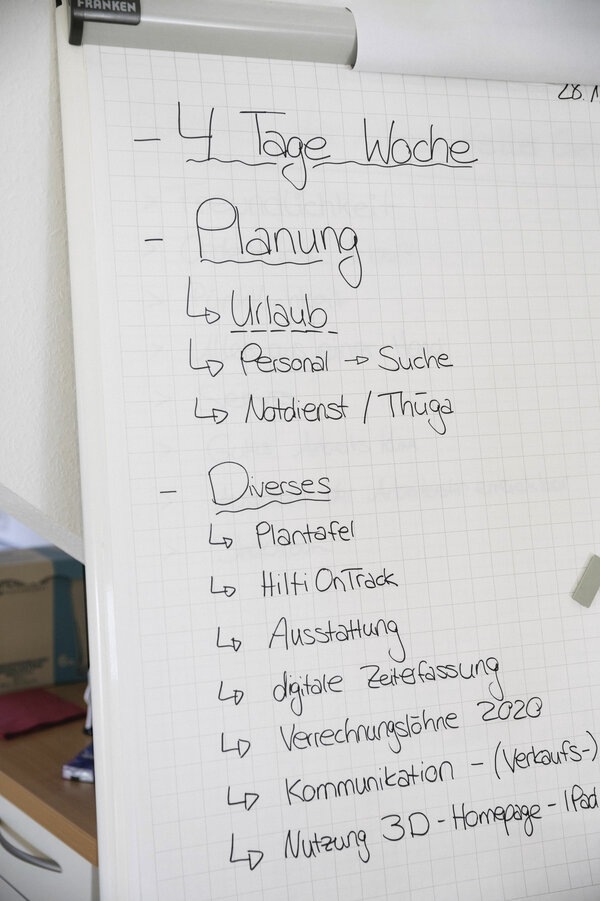 FRANKEN
28.1
- 4 Tage Woche
- Planung
↳ Urlaub
↳ Personal → Suche
↳ Notdienst / Thüga
- Diverses
↳ Plantafel
↳ Hilti OnTrack
↳ Ausstattung
↳ digitale Zeiterfassung
↳ Verrechnungslöhne 2020
↳ Kommunikation - (Verkaufs-)
↳ Nutzung 3D - Homepage - IPad